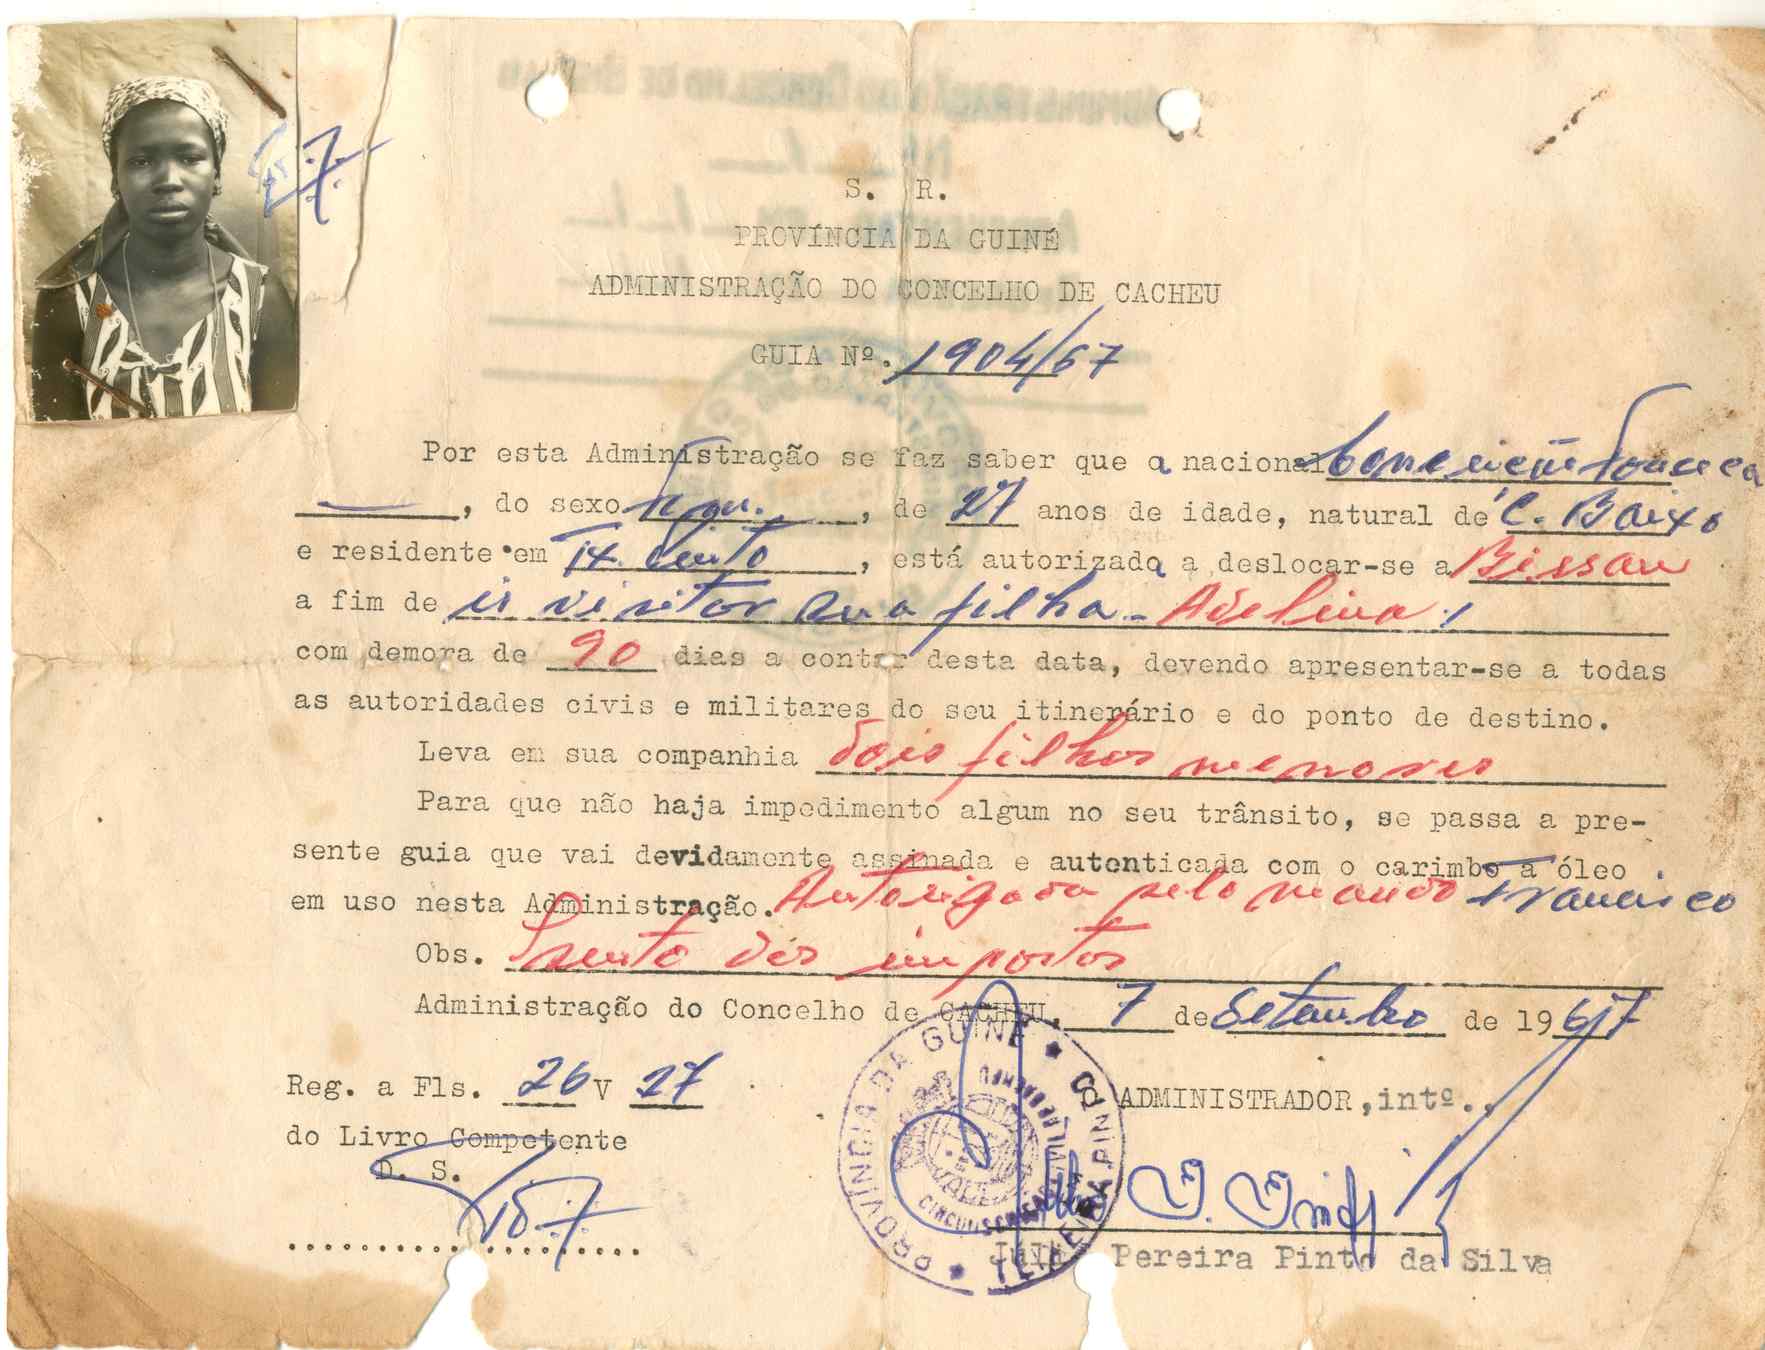 S. R.
PROVÍNCIA DA GUINÉ
ADMINISTRAÇÃO DO CONCELHO DE CACHEU
GUIA Nº. 1904/67
Por esta Administração se faz saber que a nacional
, do sexo , de 27 anos de idade, natural de C. Baixo
e residente em , está autorizada a deslocar-se a Bissau
a fim de ir visitar sua filha - Adelina
com demora de 90 dias a contar desta data, devendo apresentar-se a todas
as autoridades civis e militares do seu itinerário e do ponto de destino.
Leva em sua companhia dois filhos menores
Para que não haja impedimento algum no seu trânsito, se passa a pre-
sente guia que vai devidamente assinada e autenticada com o carimbo a óleo
em uso nesta Administração. Autorizada pelo marido Francisco
Obs. Isento dos impostos
Administração do Concelho de CACHEU, 7 de Setembro de 1967
Reg. a Fls. 26 V 27
O ADMINISTRADOR, intº.,
do Livro Competente
D. S.
PROVÍNCIA DA GUINÉ
Pereira Pinto da Silva